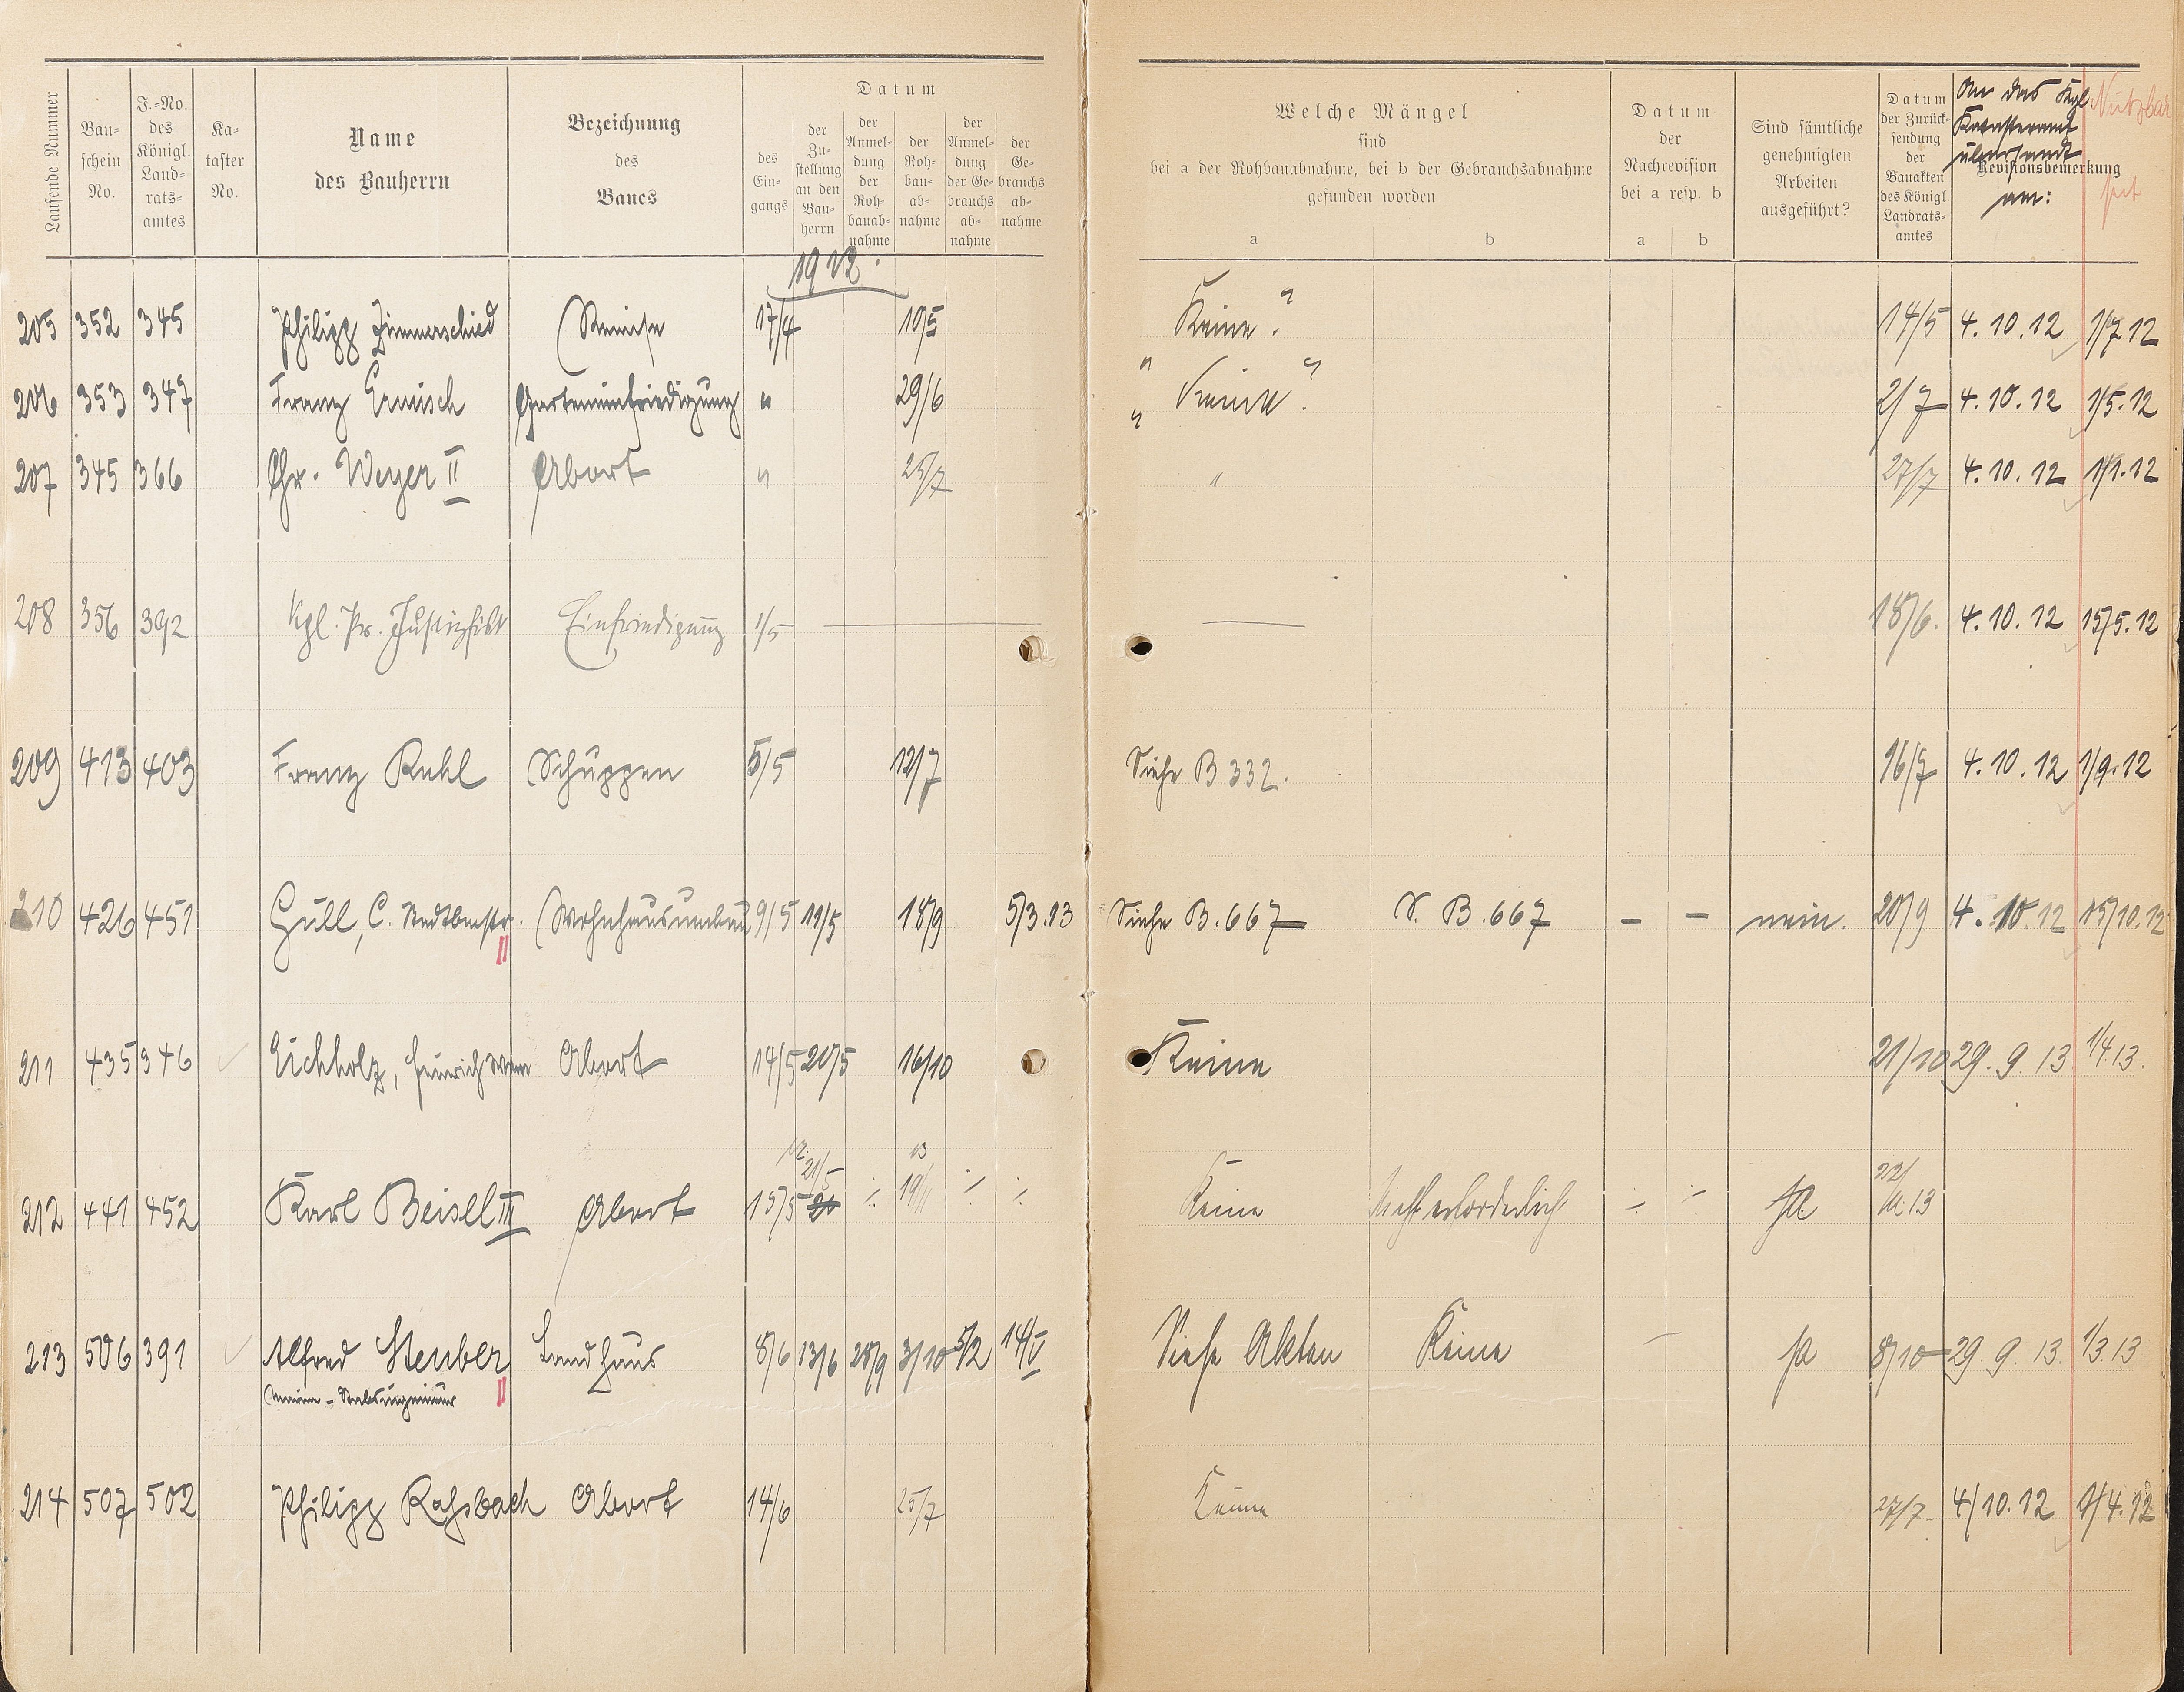 Laufende Nummer
Bau-
schein
No.
J.-No.
des
Königl.
Land-
rats-
amtes
Ka-
taster
No.
Name
des Bauherrn
Bezeichnung
des
Baues
Datum
des
Ein-
gangs
der
Zu-
stellung
an den
Bau-
herrn
der
Anmel-
dung
der
Roh-
bauab-
nahme
der
Roh-
bau-
ab-
nahme
der
Anmel-
dung
der Ge-
brauchs
ab-
nahme
der
Ge-
brauchs
ab-
nahme
Welche Mängel
sind
bei a der Rohbauabnahme, bei b der Gebrauchsabnahme
gefunden worden
a b
Datum
der
Nachrevision
bei a resp. b
a b
Sind sämtliche
genehmigten
Arbeiten
ausgeführt?
Datum
der Zurück-
sendung
der
Bauakten
des Königl
Landrats-
amtes
An das Kgl
Katasteramt
übersandt
Revisionsbemerkung
am:
Nutzbar
seit
1912.
205 352 345 Philipp Zimmerschied Remise 17/4 10/5 "Keine". 14/5 4.10.12 1/7.12
206 353 347 Franz Ernisch Garteneinfriedigung " 29/6 "Keine". 2/7 4.10.12 1/5.12
207 345 366 Chr. Weyer II Abort " 25/7 " 27/7 4.10.12 1/1.12
208 356 392 Kgl. Pr. Justizfisk Einfriedigung 1/5 — — 18/6. 4.10.12 15/5.12
209 413 403 Franz Ruhl Schuppen 5/5 12/7 Siehe B 332. 16/7 4.10.12 1/9.12
210 426 451 Güll, C. Stadtbmstr. Wohnhausumbau 9/5 11/5 18/9 5/3.13 Siehe B.667 S. B.667 – – nein. 20/9 4.10.12 15/10.12
II
211 435 346 Eichholz, Heinrich Abort 14/5 20/5 16/10 Keine 21/10 29.9.13 1/4.13.
12. 21/5 13 22/
212 441 452 Karl Beisel III Abort 15/5 ./. 19/11 ./. ./. Keine Nicht erforderlich ./. ./. Ja 11.13
213 506 391 Alfred Steuber Landhaus 8/6 13/6 28/9 3/10 5/2 14/V Siehe Akten Keine — ja 8/10 29.9.13. 1/3.13
Marine-Stabsingenieur II
214 507 502 Philipp Rossbach Abort 14/6 25/7 Keine 27/7. 4/10.12 1/4.12